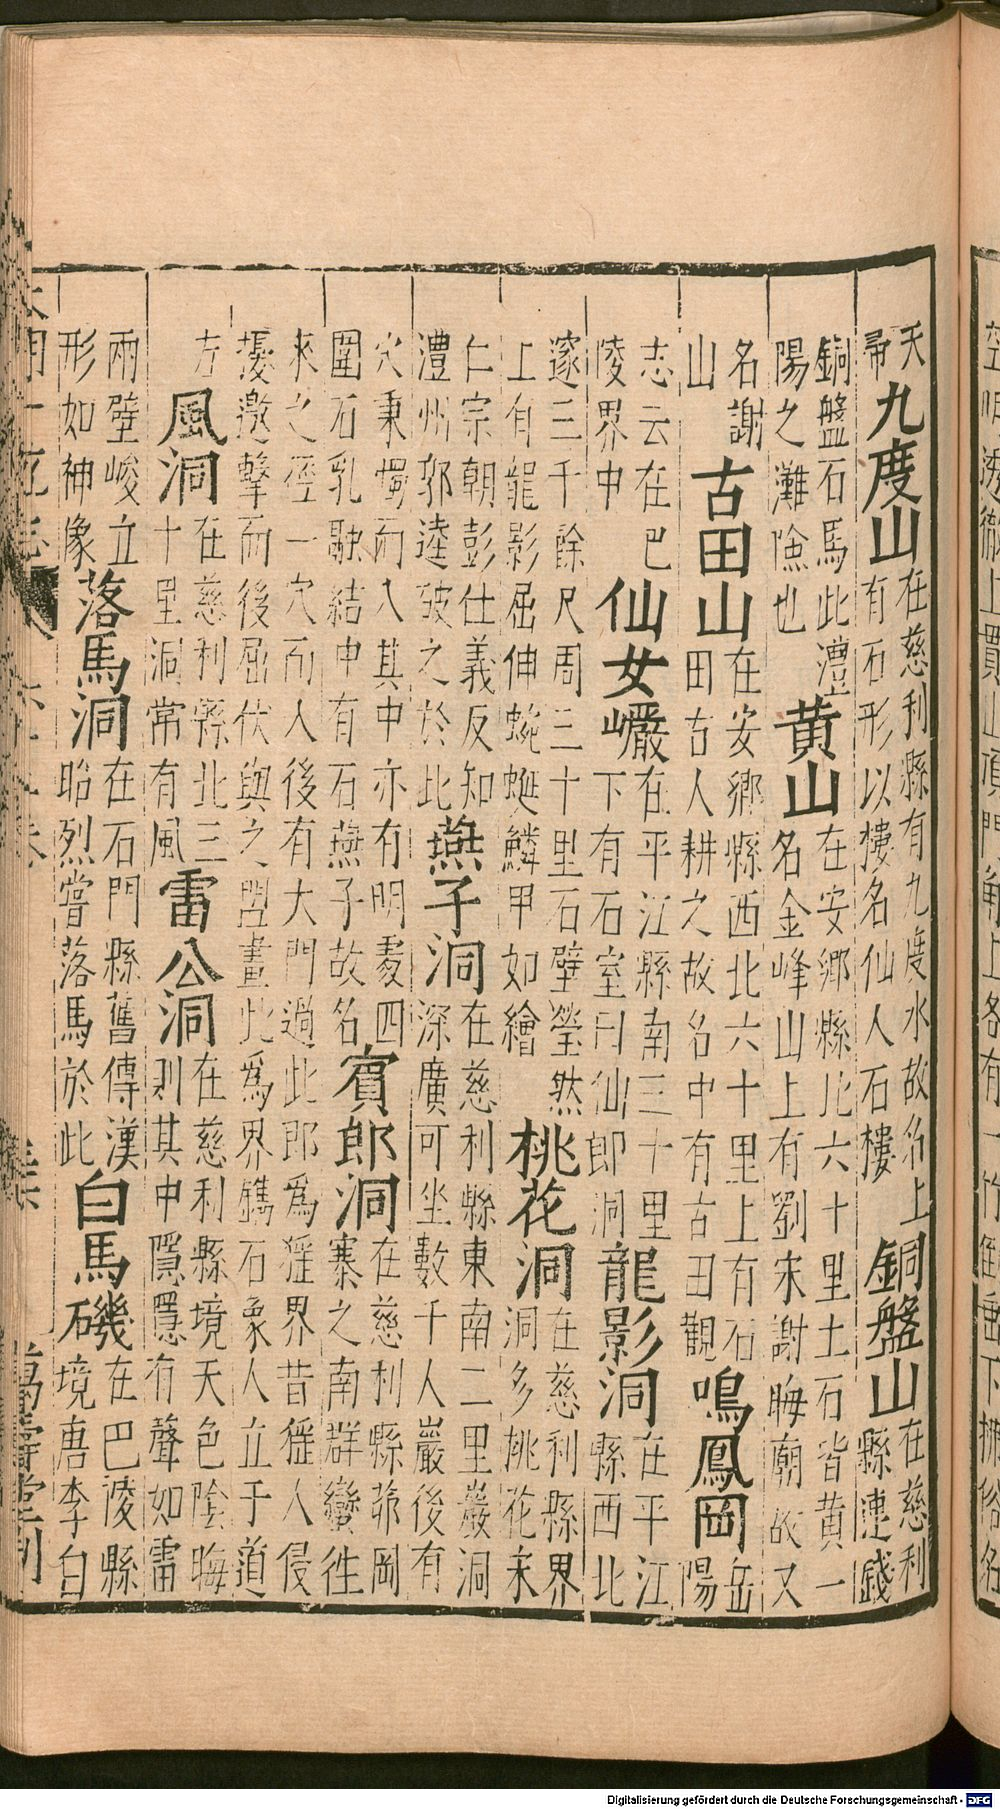 天
帚
九度山
在慈利縣有九度水故名上
有石形以樓名仙人石樓
銅盤山
在慈利
縣連錢
銅盤石馬此澧
陽之灘險也
黄山
在安鄉縣北六十里土石皆黄一
名金峰山上有劉宋謝晦廟故又
名謝
山
古田山
在安鄉縣西北六十里上有石
田古人耕之故名中有古田觀
鳴鳳岡
岳
陽
志云在巴
陵界中
仙女巗
在平江縣南三十里
下有石室曰仙郎洞
龍影洞
在平江
縣西北
邃三千餘尺周三十里石壁瑩然
上有龍影屈伸蜿蜒鱗甲如繪
桃花洞
在慈利縣界
洞多桃花宋
仁宗朝彭仕義反知
澧州郭逵破之於此
燕子洞
在慈利縣東南二里巖洞
深廣可坐數千人巖後有
穴秉燭而入其中亦有明處四
圍石乳融結中有石燕子故名
賓郎洞
在慈利縣茆岡
寨之南群蠻徃
來之徑一穴而入後有大門過此郎爲猺界昔猺人侵
擾邀擊而後屈伏與之盟畫此爲界鐫石象人立于道
左
風洞
在慈利縣北三
十里洞常有風
雷公洞
在慈利縣境天色陰晦
則其中隱隱有聲如雷
兩壁峻立
形如神像
落馬洞
在石門縣舊傳漢
昭烈嘗落馬於此
白馬磯
在巴陵縣
境唐李白
萬壽堂刊
Digitalisierung gefördert durch die Deutsche Forschungsgemeinschaft - DFG